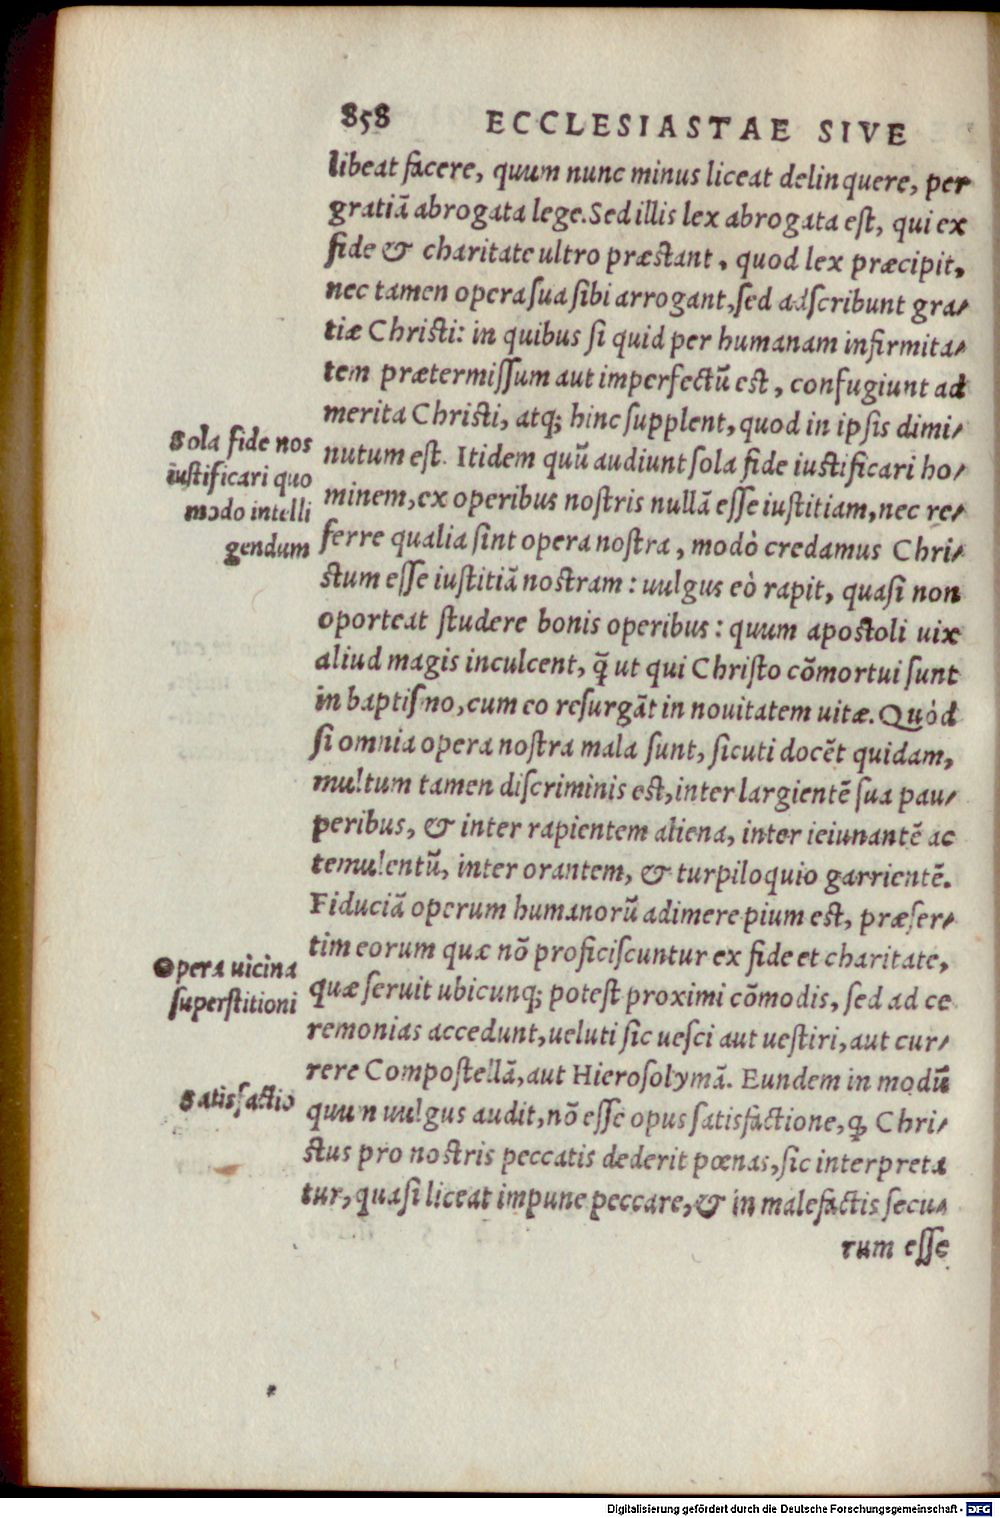 858 ECCLESIASTAE SIVE
libeat facere, quum nunc minus liceat delinquere, per
gratiā abrogata lege. Sed illis lex abrogata est, qui ex
fide & charitate ultro præstant, quod lex præcipit,
nec tamen opera sua sibi arrogant, sed adscribunt gra-
tiæ Christi: in quibus si quid per humanam infirmita-
tem prætermissum aut imperfectū est, confugiunt ad
merita Christi, atq; hinc supplent, quod in ipsis dimi-
nutum est. Itidem quū audiunt sola fide iustificari ho-
minem, ex operibus nostris nullā esse iustitiam, nec re-
ferre qualia sint opera nostra, modò credamus Chri-
stum esse iustitiā nostram: uulgus eò rapit, quasi non
oporteat studere bonis operibus: quum apostoli uix
aliud magis inculcent, q̄ ut qui Christo cōmortui sunt
in baptismo, cum eo resurgāt in nouitatem uitæ. Quòd
si omnia opera nostra mala sunt, sicuti docēt quidam,
multum tamen discriminis est, inter largientē sua pau-
peribus, & inter rapientem aliena, inter ieiunantē ac
temulentū, inter orantem, & turpiloquio garrientē.
Fiduciā operum humanorū adimere pium est, præser-
tim eorum quæ nō proficiscuntur ex fide et charitate,
quæ seruit ubicunq; potest proximi cōmodis, sed ad ce
remonias accedunt, ueluti sic uesci aut uestiri, aut cur-
rere Compostellā, aut Hierosolymā. Eundem in modū
quum uulgus audit, nō esse opus satisfactione, ꝙ Chri-
stus pro nostris peccatis dederit pœnas, sic interpreta
tur, quasi liceat impune peccare, & in malefactis secu-
rum esse
Sola fide nos
iustificari quo
modo intelli
gendum
Opera uicina
superstitioni
Satisfactio
Digitalisierung gefördert durch die Deutsche Forschungsgemeinschaft - DFG